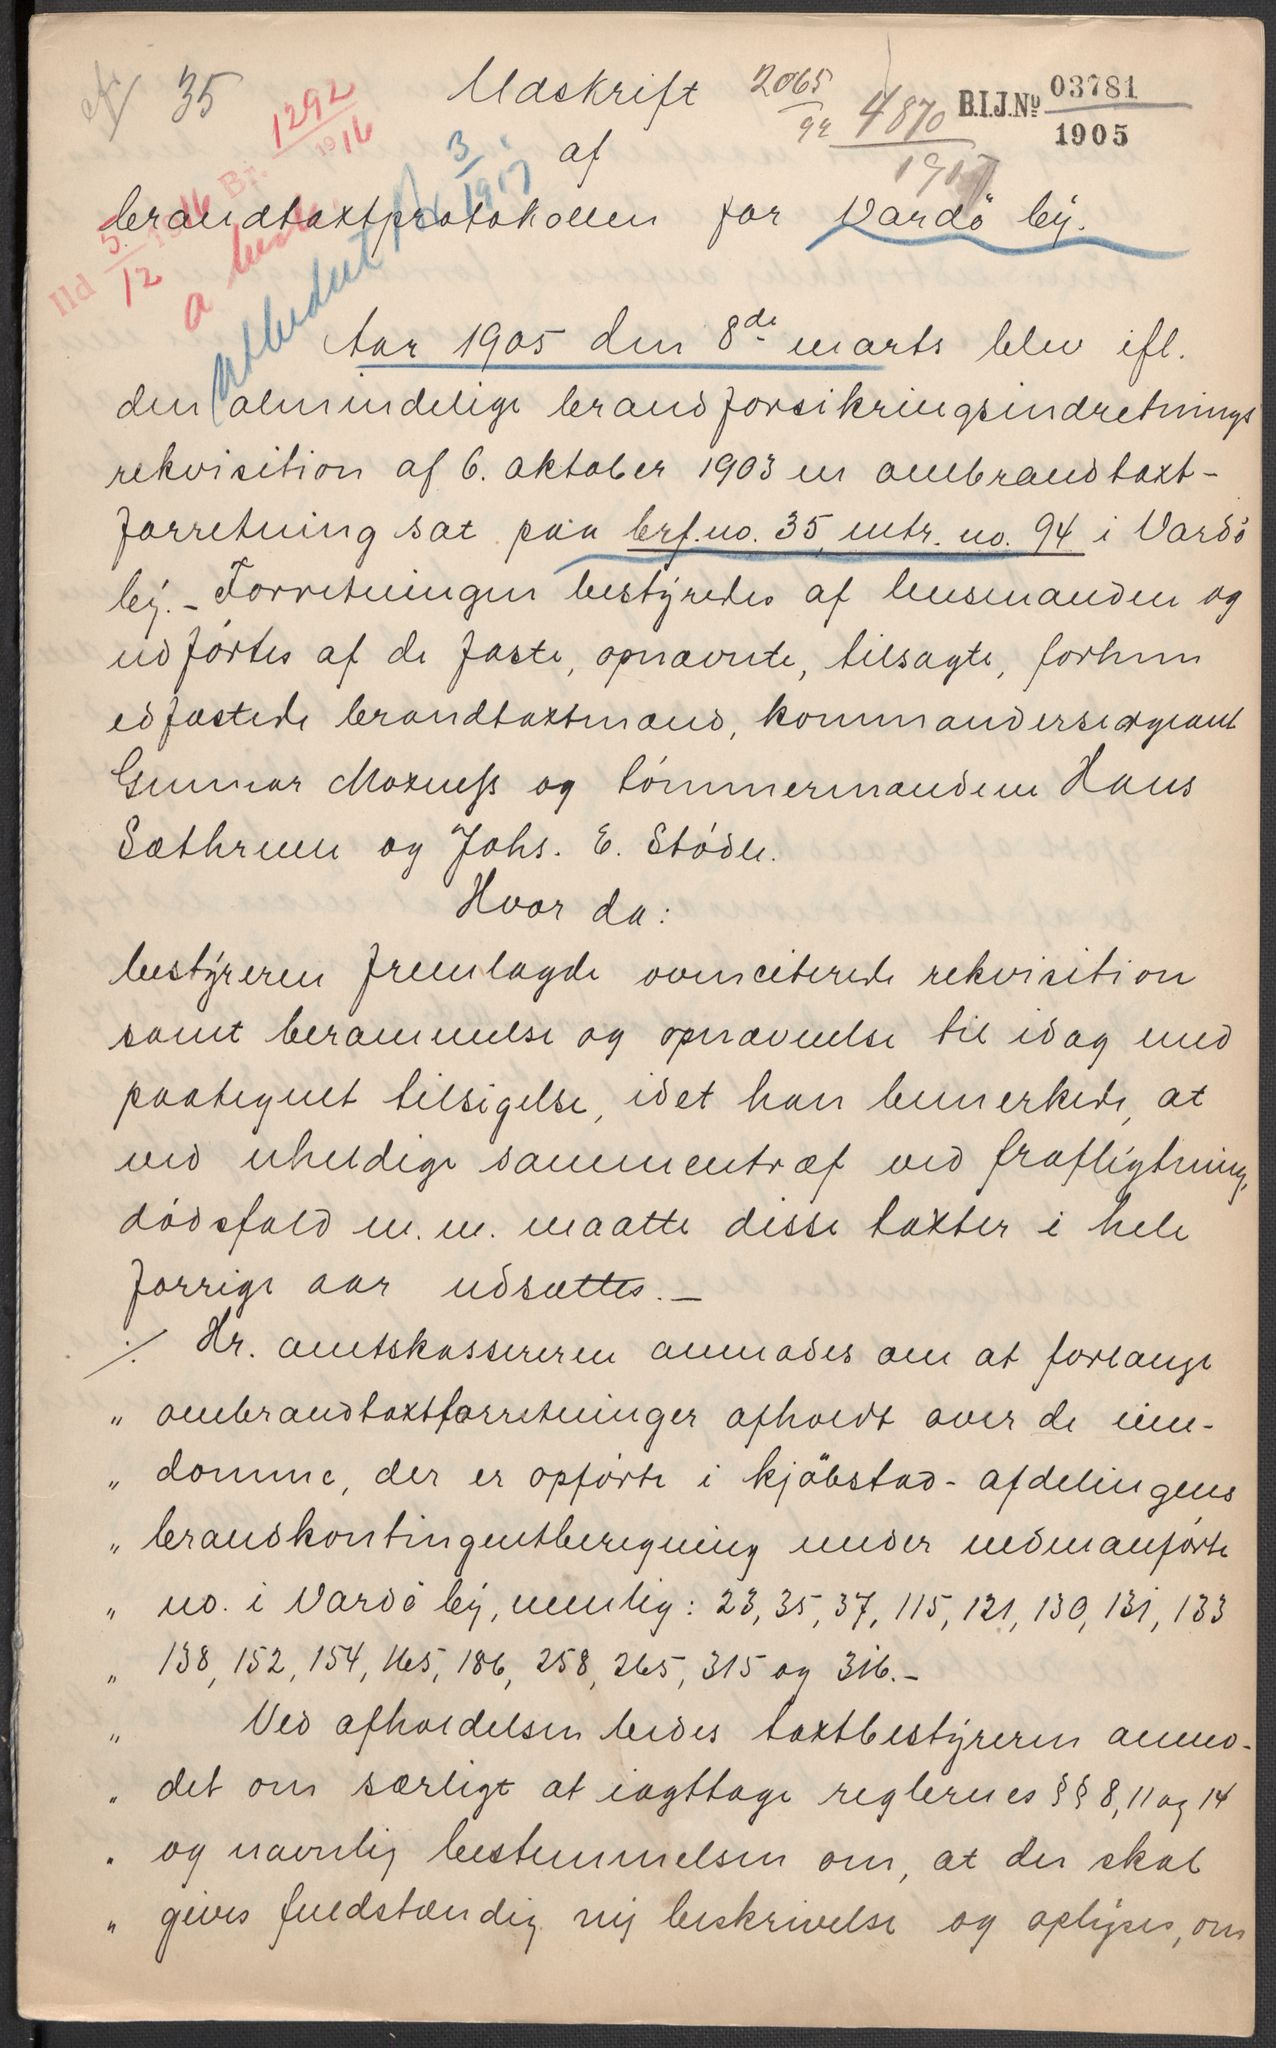 35
Udskrift
2065
92
4870
1917
B.I.J.No 03781
1905
1292
1916
af
3
1917
brandtaxtprotokollen for Vardö by.
Ild 5. 1916 Br.
12
a
Aar 1905 den 8de marts blev ifl.
den almindelige brandforsikringsindretnings
rekvisition af 6. oktober 1903 en ombrandtaxt-
forretning sat paa brf. no. 35, mtr. no. 94 i Vardö
by. - Forretningen bestyredes af lensmanden og
udförtes af de faste, opnævnte, tilsagte, forhen
edfæstede brandtaxtmænd, kommandersergeant
Gunnar Moxness og tömmermændene Hans
Sæthrum og Johs. E. Stödle.
Hvor da:
bestyreren fremlagde ovenciterede rekvisition
samt berammelse og opnævnelse til idag med
paategnet tilsigelse, idet han bemerkede, at
ved uheldige sammentræf ved fraflytning,
dödsfald m. m. maatte disse taxter i hele
forrige aar udsættes. -
./. Hr. amtskassereren anmodes om at forlange
" ombrandtaxtforretninger afholdt over de eien-
" domme, der er opförte i kjöbstad-afdelingens
" brandkontingentberegning under nedenanförte
" no. i Vardö by, nemlig: 23, 35, 37, 115, 121, 130, 131, 133
" 138, 152, 154, 165, 186, 258, 265, 315 og 316. -
" Ved afholdelsen bedes taxtbestyreren anmo-
" det om særligt at iagttage reglernes §§ 8, 11 og 14
" og navnlig bestemmelsen om, at der skal
" gives fuldstændig ny beskrivelse og oplyses, om